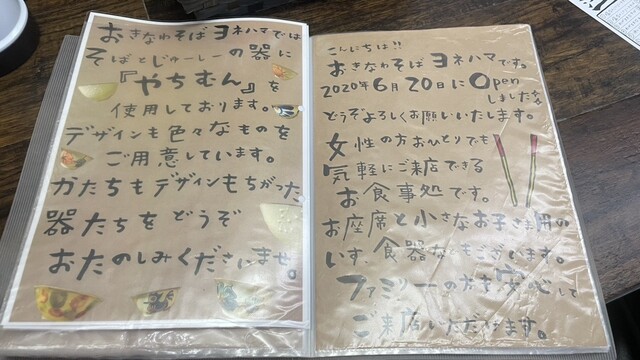 おきなわそばヨネハマでは
そばとじゅーしーの器に
『やちむん』を
使用しております。
デザインも色々なものを
ご用意しています。
かたちもデザインもちがった
器たちをどうぞ
おたのしみくださいませ。
こんにちは!!
おきなわそばヨネハマです。
2020年6月20日にOpen
しました
どうぞよろしくお願いいたします。
女性の方おひとりでも
気軽にご来店できる
お食事処です。
お座席と小さなお子さま用の
いす、食器などもございます。
ファミリーの方も安心して
ご来店いただけます。